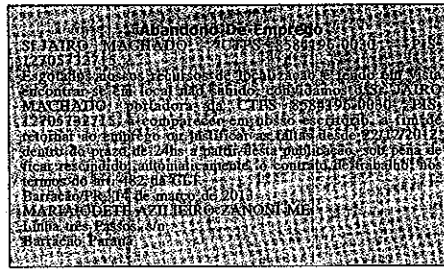 Abandono De Emprego
SR JAIRO MACHADO CTPS 8588196-0030 PIS
Esgotados nossos recursos de localização e tendo em vista
encontrar-se em local não sabido, convidamos o Sr. JAIRO
MACHADO, portadora da CTPS 8588196-0030 PIS
a comparecer em nosso escritório, a fim de
retornar ao emprego ou justificar as faltas desde 22/12/2012,
dentro do prazo de 24hs a partir desta publicação, sob pena de
ficar rescindido, automaticamente, o contrato de trabalho, nos
termos do art. 482 da CLT.
Barracão/PR, 14 de março de
MARIA ODETE ZANONI ME
Linha três Passos, s/n
Barracão Paraná